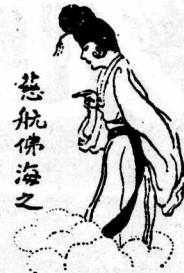 慈航佛海之